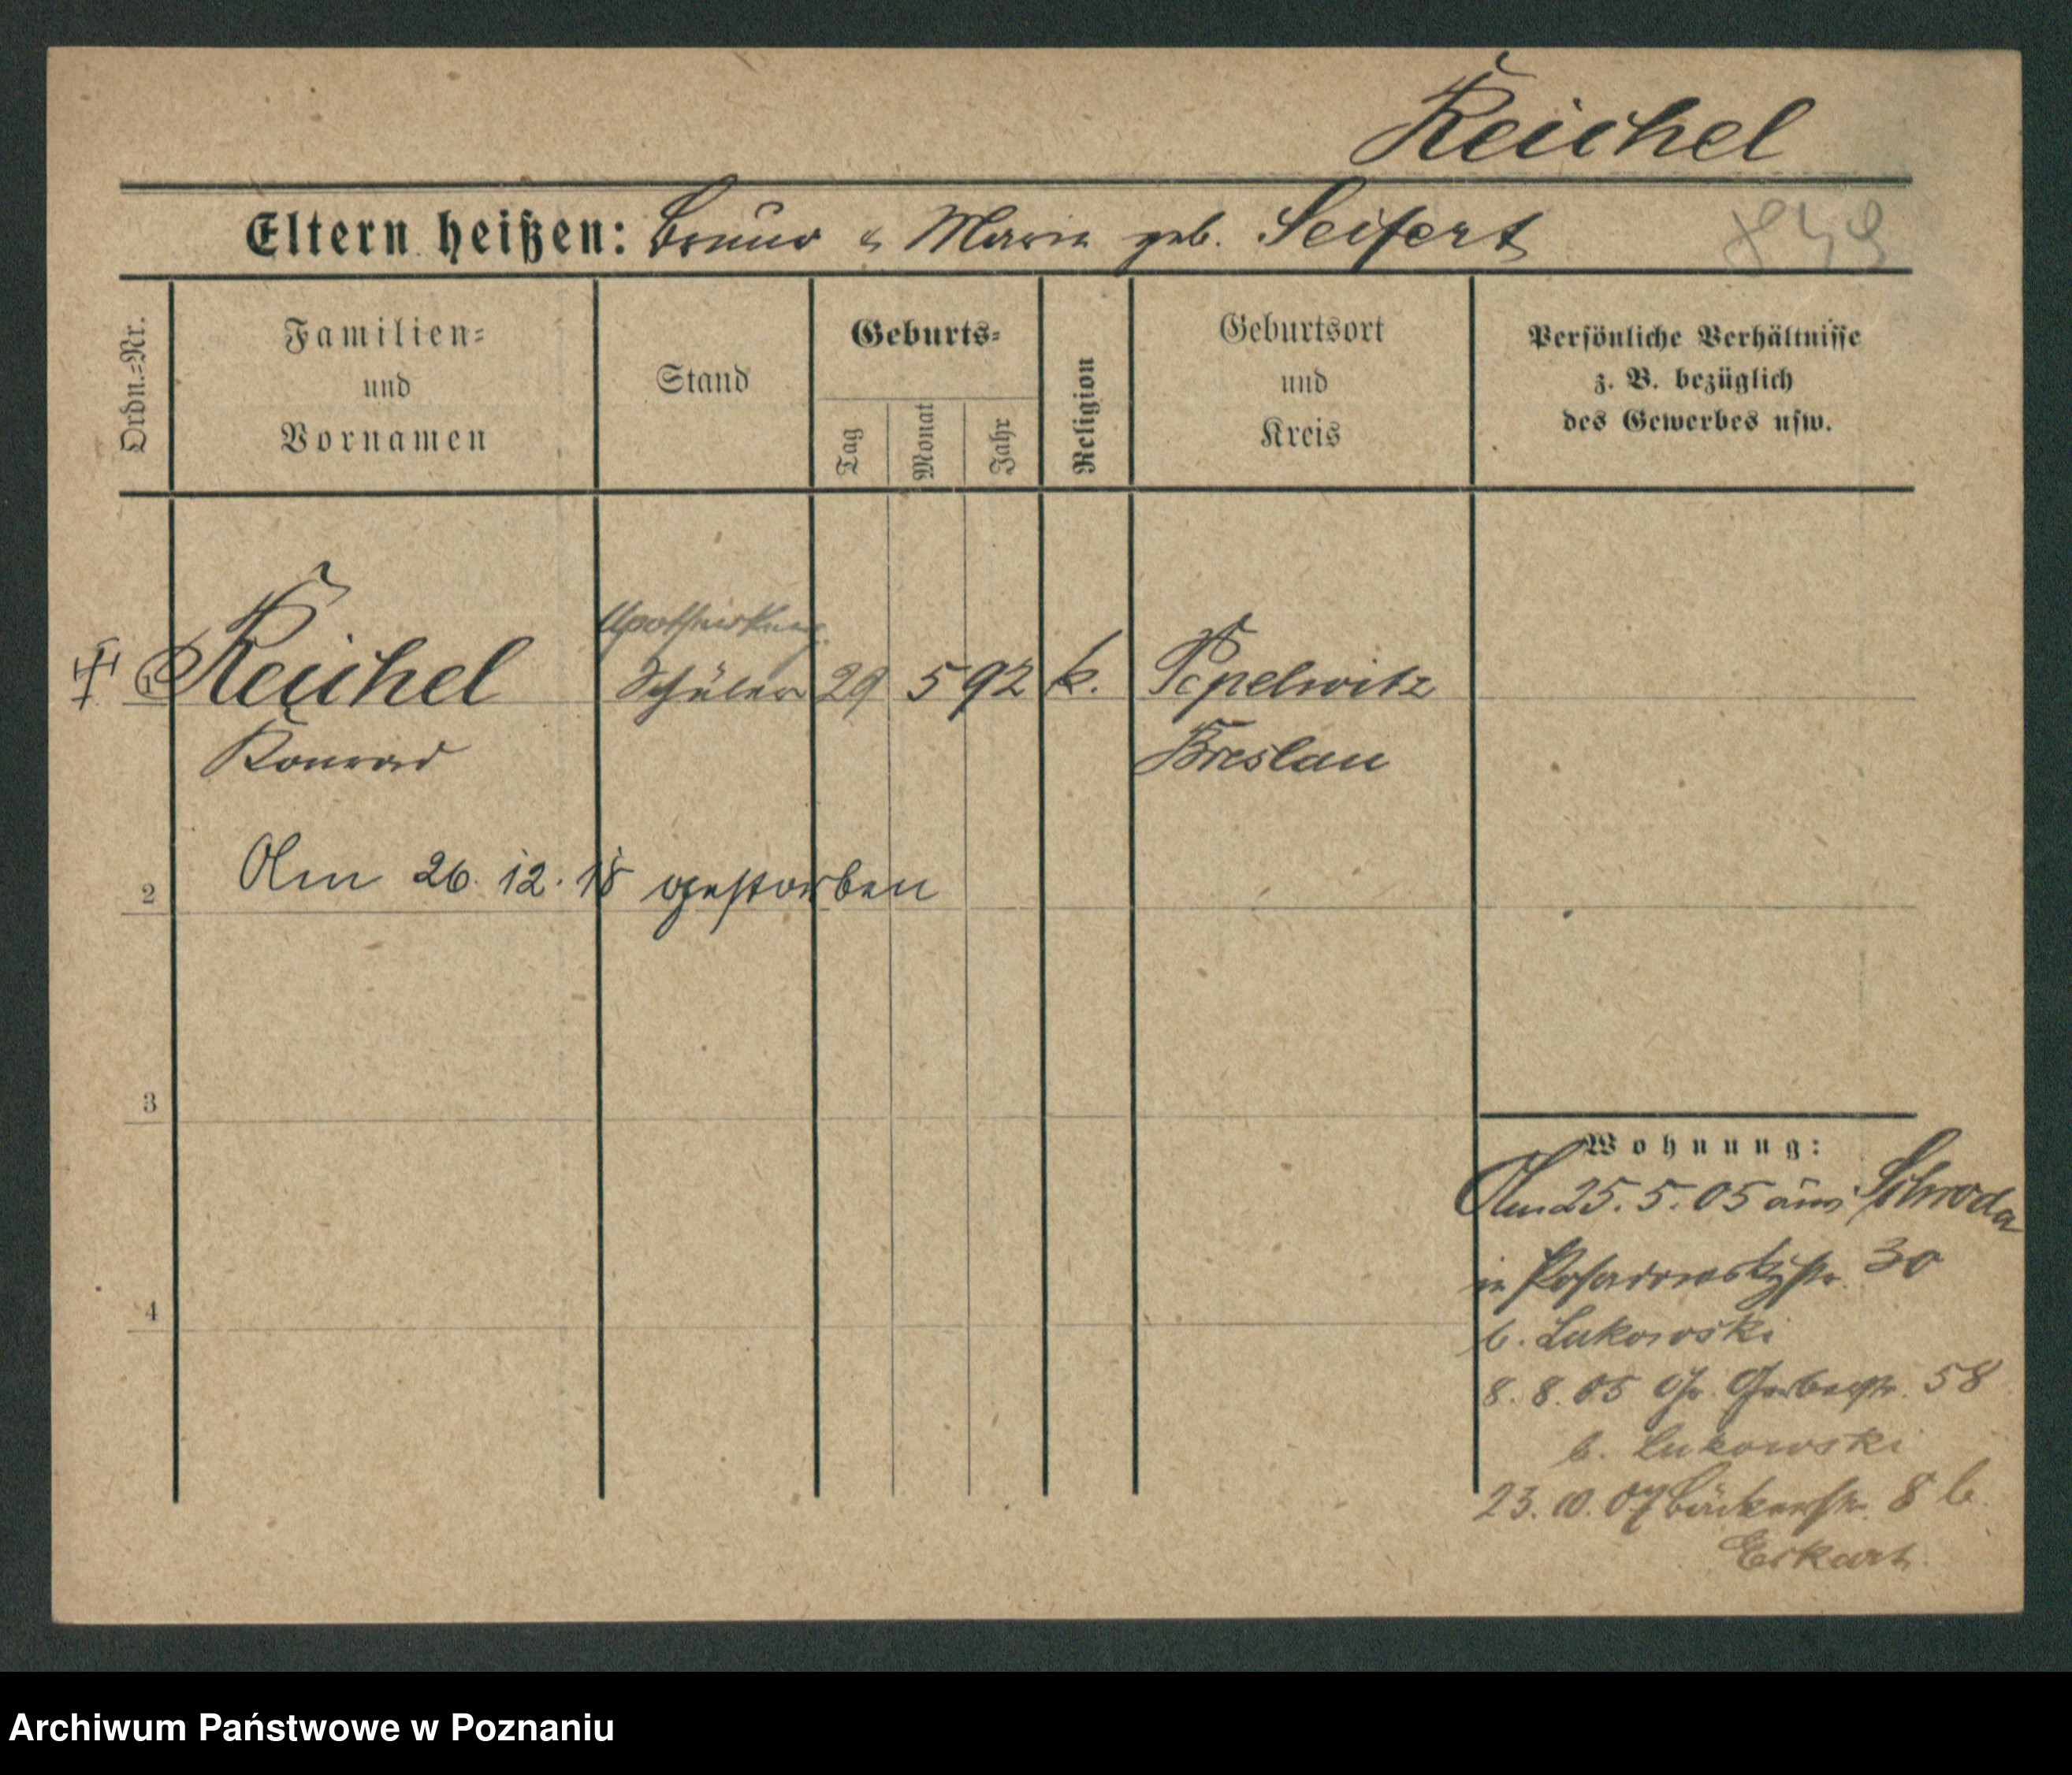 Reichel
Eltern heißen: Bruno u Maria geb. Seifert
849
Ordn.-Nr.
Familien-
und
Vornamen
Stand
Geburts-
Tag
Monat
Jahr
Religion
Geburtsort
und
Kreis
Persönliche Verhältnisse
z. B. bezüglich
des Gewerbes usw.
1 Reichel Schüler 29 5 92 k. Popelwitz
Konrad Breslau
2 Am 26. 12. 18 gestorben
3
4
Wohnung:
Am 25. 5. 05 aus Schroda
in Posadowskystr. 30
b. Lukowski
8. 8. 05 Gr. Gerberstr. 58
b. Lukowski
23. 10. 07 Bäckerstr. 8 b.
Archiwum Państwowe w Poznaniu